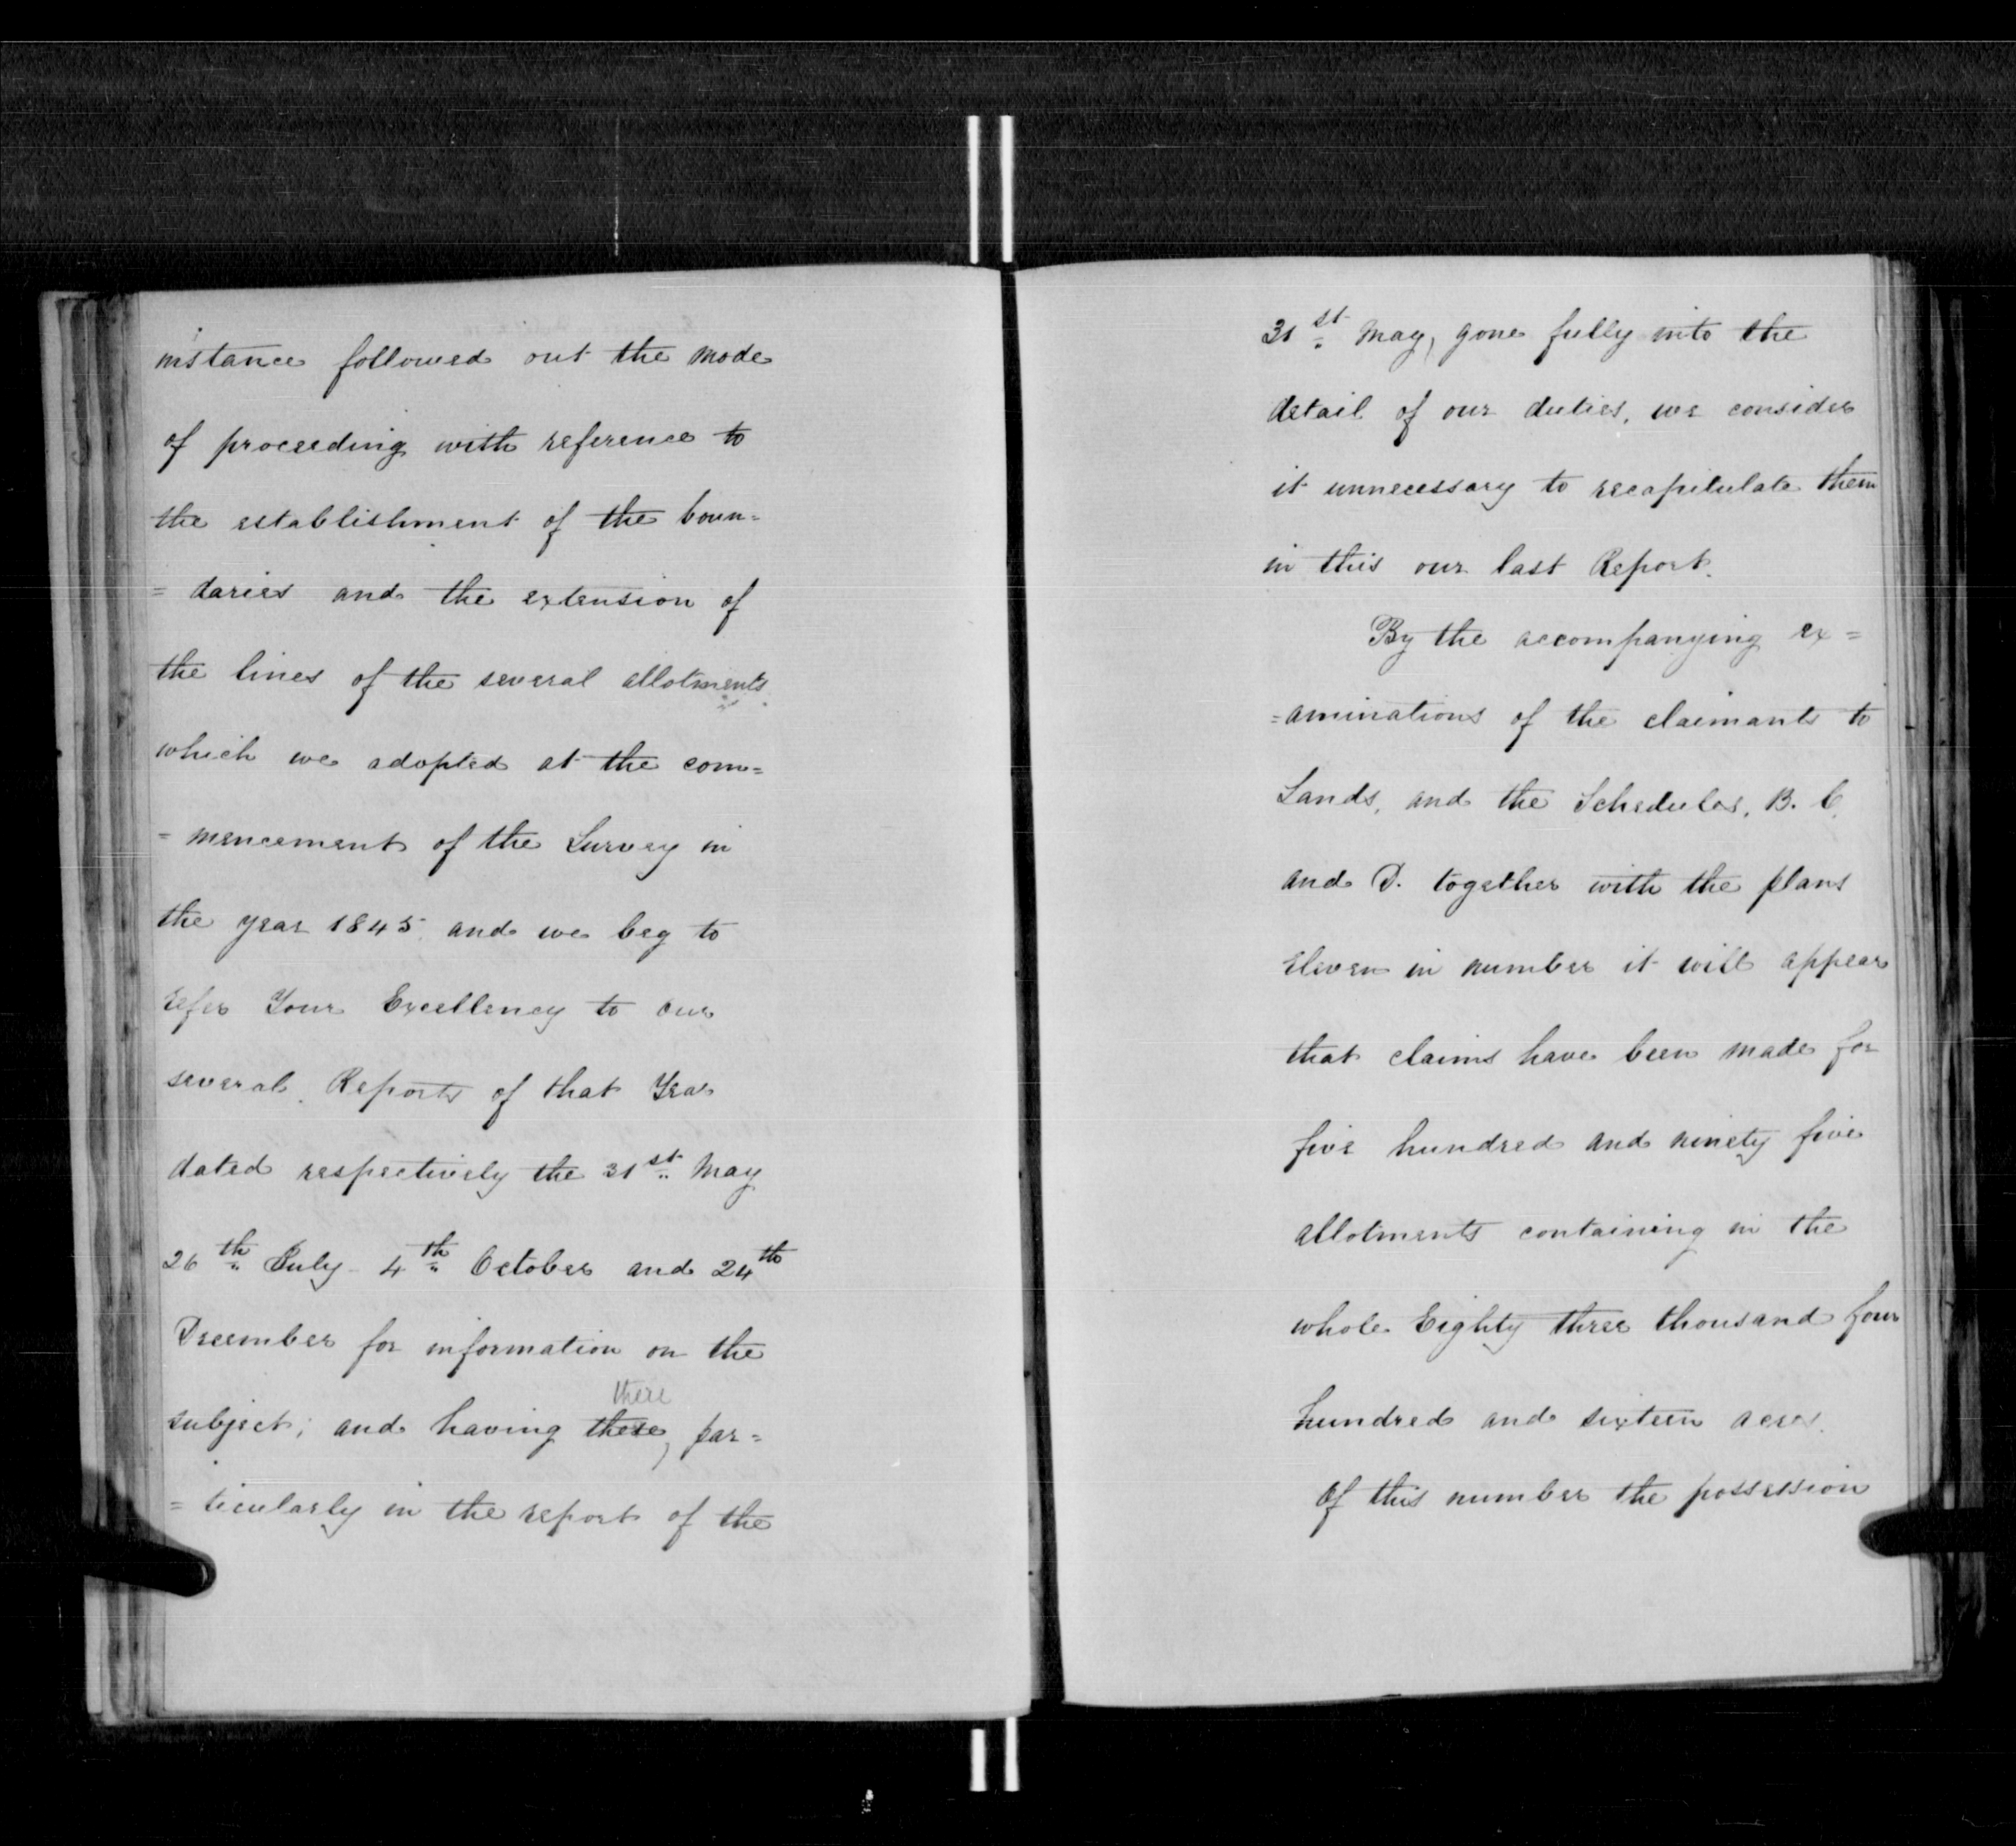 instance followed out the mode
of proceeding with reference to
the establishment of the boun=
=daries and the extension of
the lines of the several allotments
which we adopted at the com=
=mencement of the Survey in
the year 1845 and we beg to
refer Your Excellency to our
several Reports of that Year
dated respectively the 31st May
26th July 4th October and 24th
December for information on the
there
subject; and having these, par=
=ticularly in the report of the
31st May, gone fully into the
detail of our duties, we consider
it unnecessary to recapitulate them
in this our last Report.
By the accompanying ex=
=aminations of the claimants to
Lands, and the Schedules, B. C.
and D. together with the plans
eleven in number it will appear
that claims have been made for
five hundred and ninety five
allotments containing in the
whole Eighty three thousand four
hundred and sixteen acres.
Of this number the possession